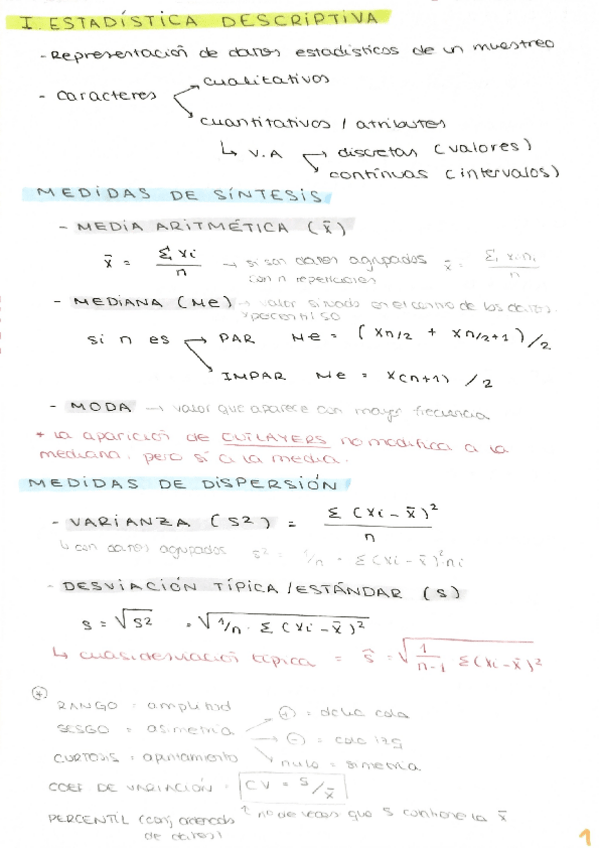 I. ESTADÍSTICA DESCRIPTIVA
- Representación de datos estadísticos de un muestreo
- caracteres → cualitativos
→ cuantitativos / atributos
↳ V.A → discretas (valores)
→ continuas (intervalos)
MEDIDAS DE SÍNTESIS
- MEDIA ARITMÉTICA (x̄)
x̄ = Σ xi / n → si son datos agrupados x̄ = Σ xi.ni / n
con n repeticiones
- MEDIANA (Me) → valor situado en el centro de los datos.
si n es → PAR Me = (xn/2 + xn/2+1)/2
→ IMPAR Me = x(n+1)/2
- MODA → valor que aparece con mayor frecuencia
* la aparición de OUTLAYERS no modifica a la
mediana, pero sí a la media.
MEDIDAS DE DISPERSIÓN
- VARIANZA (S2) = Σ (xi - x̄)² / n
↳ con datos agrupados s² = 1/n · Σ (xi - x̄)² ni
- DESVIACIÓN TÍPICA/ESTÁNDAR (S)
s = √s2 = √1/n · Σ (xi - x̄)²
↳ cuasidesviación típica = ŝ = √1/n-1 Σ(xi - x̄)²
RANGO = amplitud
SESGO = asimetría → (+) = dcha cola
→ (-) = cola izq
CURTOSIS = apuntamiento → nulo = simetría
COEF DE VARIACIÓN = CV = S/x̄
↑ no de veces que S contiene la x̄
PERCENTIL (conj ordenado
de datos)
1